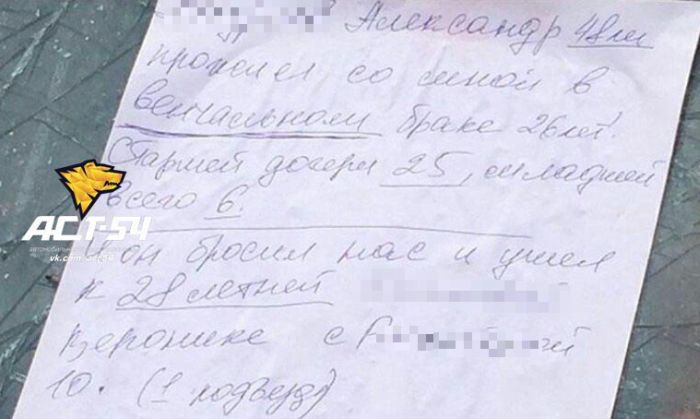 Александр 48 лет
прожил со мной в
венчальном браке 26 лет!
Старшей дочери 25, младшей
всего 6.
И он бросил нас и ушел
к 28 летней
Веронике с
10. (1 подъезд)
АСТ-54
vk.com/act54